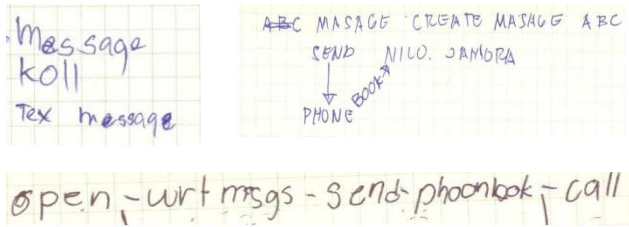 Message
koll
Tex message
ABC MASAGE CREATE MASAGE ABC
SEND NICO. JAMORA
BOOK
PHONE
open - wrt msgs - send - phoonbok - call